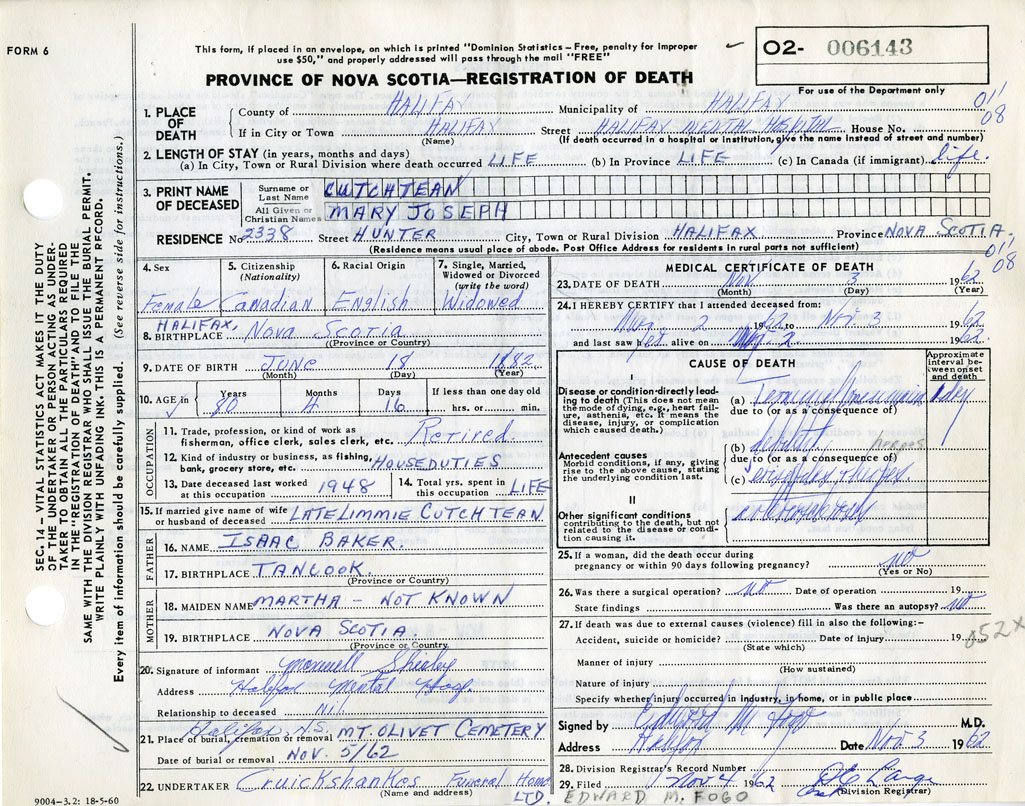 FORM 6
This form, if placed in an envelope, on which is printed "Dominion Statistics – Free, penalty for improper
use $50," and properly addressed will pass through the mail "FREE"
PROVINCE OF NOVA SCOTIA—REGISTRATION OF DEATH
O2- 006143
For use of the Department only
011
08
1. PLACE OF DEATH
County of HALIFAX Municipality of HALIFAX
If in City or Town HALIFAX Street HALIFAX MENTAL HOSPITAL House No.
(Name) (If death occurred in a hospital or institution, give the name instead of street and number)
2. LENGTH OF STAY (in years, months and days)
(a) In City, Town or Rural Division where death occurred LIFE (b) In Province LIFE (c) In Canada (if immigrant) life.
3. PRINT NAME OF DECEASED
Surname or Last Name CUTCHTEAN
All Given or Christian Names MARY JOSEPH
RESIDENCE No 2338 Street HUNTER City, Town or Rural Division HALIFAX Province NOVA SCOTIA.
(Residence means usual place of abode. Post Office Address for residents in rural parts not sufficient)
011
08
4. Sex Female
5. Citizenship (Nationality) Canadian
6. Racial Origin English
7. Single, Married, Widowed or Divorced (write the word) Widowed
8. BIRTHPLACE HALIFAX, Nova Scotia
(Province or Country)
9. DATE OF BIRTH JUNE 18 1882
(Month) (Day) (Year)
10. AGE in Years 80 Months 4 Days 16 If less than one day old hrs. or min.
OCCUPATION
11. Trade, profession, or kind of work as fisherman, office clerk, sales clerk, etc. Retired.
12. Kind of industry or business, as fishing, bank, grocery store, etc. HOUSEDUTIES
13. Date deceased last worked at this occupation 1948
14. Total yrs. spent in this occupation LIFE
15. If married give name of wife or husband of deceased LATE LIMMIE CUTCHTEAN
FATHER
16. NAME ISAAC BAKER.
17. BIRTHPLACE TANCOOK.
(Province or Country)
MOTHER
18. MAIDEN NAME MARTHA – NOT KNOWN
19. BIRTHPLACE NOVA SCOTIA.
(Province or Country)
20. Signature of informant Shirley
Address Halifax Mental Hosp.
Relationship to deceased Nil
21. Place of burial, cremation or removal Halifax, N.S. MT. OLIVET CEMETERY
Date of burial or removal NOV. 5/62
22. UNDERTAKER Cruickshankes Funeral Home LTD.
(Name and address)
9004–3.2: 18-5-60
MEDICAL CERTIFICATE OF DEATH
23. DATE OF DEATH Nov. 3 1962
(Month) (Day) (Year)
24. I HEREBY CERTIFY that I attended deceased from:
2 1962 to Nov 3 1962
and last saw her alive on 2 1962
CAUSE OF DEATH
Approximate interval between onset and death
I
Disease or condition directly leading to death (This does not mean the mode of dying, e.g., heart failure, asthenia, etc. It means the disease, injury, or complication which caused death.)
(a) Terminal Pneumonia 1 day
due to (or as a consequence of)
Antecedent causes
Morbid conditions, if any, giving rise to the above cause, stating the underlying condition last.
(b) debility
due to (or as a consequence of)
herpes
(c)
II
Other significant conditions
contributing to the death, but not related to the disease or condition causing it.
25. If a woman, did the death occur during pregnancy or within 90 days following pregnancy? no
(Yes or No)
26. Was there a surgical operation? no Date of operation 19
State findings Was there an autopsy? no
27. If death was due to external causes (violence) fill in also the following:–
Accident, suicide or homicide? Date of injury 19
(State which)
052X
Manner of injury
(How sustained)
Nature of injury
Specify whether injury occurred in industry, in home, or in public place
Signed by Edward M. Fogo M.D.
Address Halifax Date Nov. 3 1962
28. Division Registrar's Record Number
29. Filed Nov 4 1962
(Division Registrar)
EDWARD M. FOGO
SEC. 14 – VITAL STATISTICS ACT MAKES IT THE DUTY
OF THE UNDERTAKER OR PERSON ACTING AS UNDER-
TAKER TO OBTAIN ALL THE PARTICULARS REQUIRED
IN THE "REGISTRATION OF DEATH" AND TO FILE THE
SAME WITH THE DIVISION REGISTRAR WHO SHALL ISSUE THE BURIAL PERMIT.
WRITE PLAINLY WITH UNFADING INK. THIS IS A PERMANENT RECORD.
Every item of information should be carefully supplied. (See reverse side for instructions.)